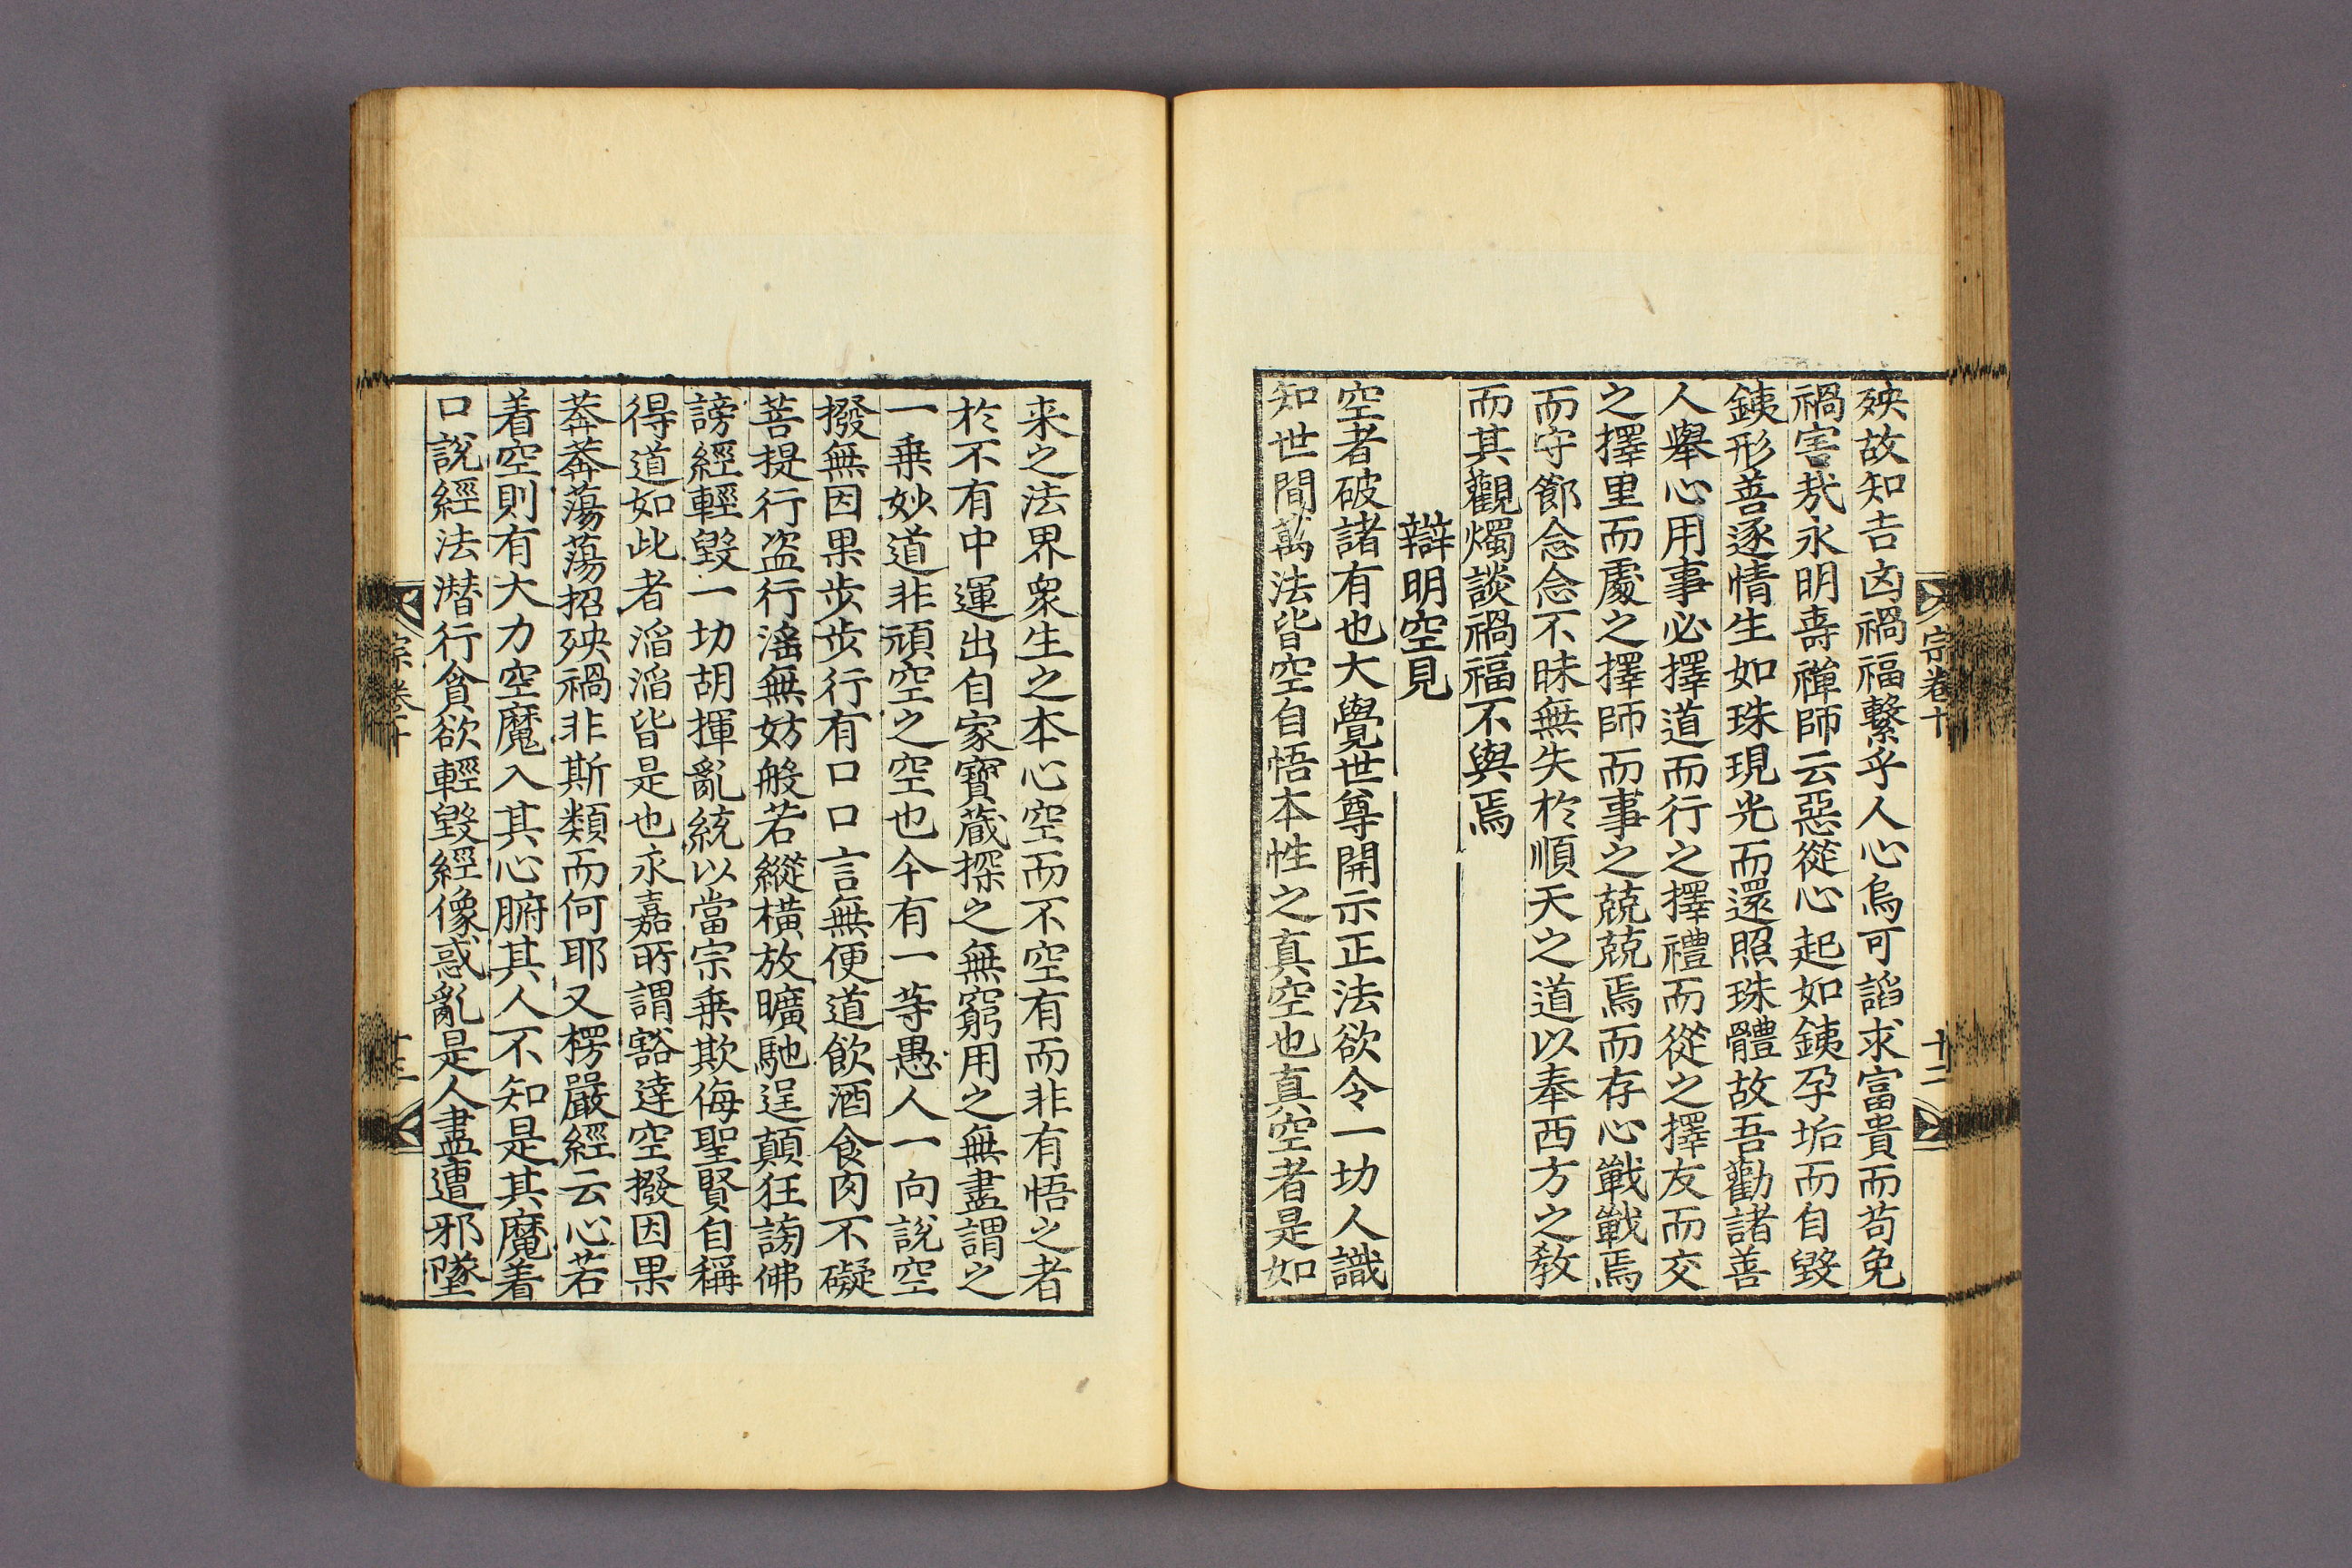 殃故知吉凶禍福繫乎人心烏可謟求富貴而苟免
禍害㢤永明壽禪師云惡從心起如銕孕垢而自毀
銕形善逐情生如珠現光而還照珠體故吾勸諸善
人舉心用事必擇道而行之擇禮而從之擇友而交
之擇里而處之擇師而事之兢兢焉而存心戰戰焉
而守節念念不昧無失於順天之道以奉西方之敎
而其觀燭談禍福不與焉
辯明空見
空者破諸有也大覺世尊開示正法欲令一切人識
知世間萬法皆空自悟本性之真空也真空者是如
宗卷十
十二
来之法界衆生之本心空而不空有而非有悟之者
於不有中運出自家寶蔵探之無窮用之無盡謂之
一乗妙道非頑空之空也今有一等愚人一向說空
撥無因果步步行有口口言無便道飲酒食肉不礙
菩提行盗行滛無妨般若縱橫放曠馳逞顛狂謗佛
謗經輕毀一切胡揮亂統以當宗乗欺侮聖賢自稱
得道如此者滔滔皆是也永嘉所謂豁達空撥因果
莽莽蕩蕩招殃禍非斯類而何耶又楞嚴經云心若
着空則有大力空魔入其心腑其人不知是其魔着
口說經法潜行貪欲輕毀經像惑亂是人盡遭邪墜
宗卷十
十三